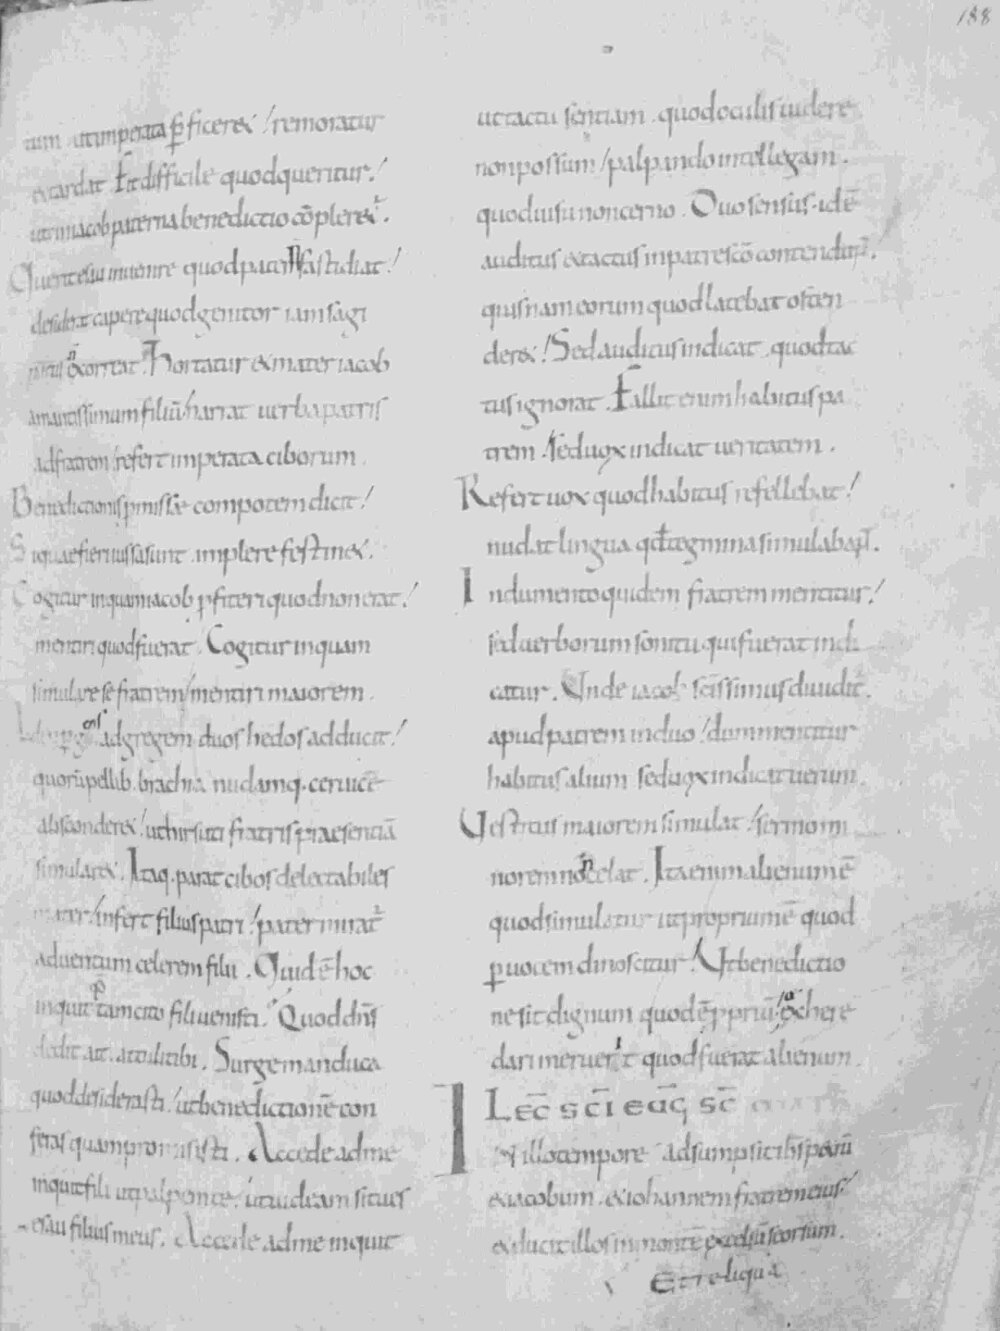 188
ut imperata ꝑficeret / remoratur
et tardat Fit difficile quod queritur /
ut in iacob paterna benedictio cōpleret᷑.
Querit esau inuenire quod pater fastidiat /
desiderat capere quod genitor iam sagi
natus occurreat. Hortatur et mater iacob
amantissimum filiū / narrat uerba patris
ad fratrem / refert imperata ciborum
Benedictionis ꝓmissæ compotem dicit /
Si quae fieri iussa sunt implere festinet.
Cogitur inquam iacob ꝓfiteri quod non erat /
mentiri quod fuerat. Cogitur inquam
simulare se fratrem / mentiri maiorem.
ad gregem duos hedos adducit /
quorū pellib. brachia nudamq. ceruicē
absconderet / ut hirsuti fratris praesentiā
simularet. Itaq. parat cibos delectabiles
mater / infert filius patri / pater miratᷣ
aduentum celerem filii. Quid ē hoc
inquit tam cito fili uenisti. Quod dn̄s
dedit ait attuli tibi. Surge manduca
quod desiderasti / ut benedictionē con
feras quam promisisti. Accede ad me
inquit fili ut palpem te / ut uideam si tu es
esau filius meus. Accede ad me inquit
ut tactu sentiam. quod oculis uidere
non possum / palpando intellegam.
quod uisu non cerno. Duo sensus. idē
auditus et tactus in patre scō contendunt.
quisnam eorum quod latebat osten
deret / Sed auditus indicat. quod tac
tus ignorat. Fallit enim habitus pa
trem / sed uox indicat ueritatem.
Refert uox quod habitus refellebat /
nudat lingua qd̄ tegmina simulabant.
Indumento quidem fratrem mentitur /
sed uerborum sonitu qui fuerat indi
catur. Unde iacob scīssimus diuiditᷣ.
apud patrem in duo / dum mentitur
habitus alium sed uox indicat uerum
Uestitus maiorem simulat / sermo mi
norem nō celat. Ita enim alienum ē
quod simulatur ut proprium ē quod
ꝑ uocem dinoscitur / Ut benedictio
ne sit dignum quod ē ꝓpriū / & here
dari meruerit quod fuerat alienum.
Lec̄ sc̄i euḡ sc̄
In illo tempore adsumpsit ihs petrū
et iacobum. et iohannem fratrem eius /
et ducit illos in montē excelsū seorsum.
Et reliqua